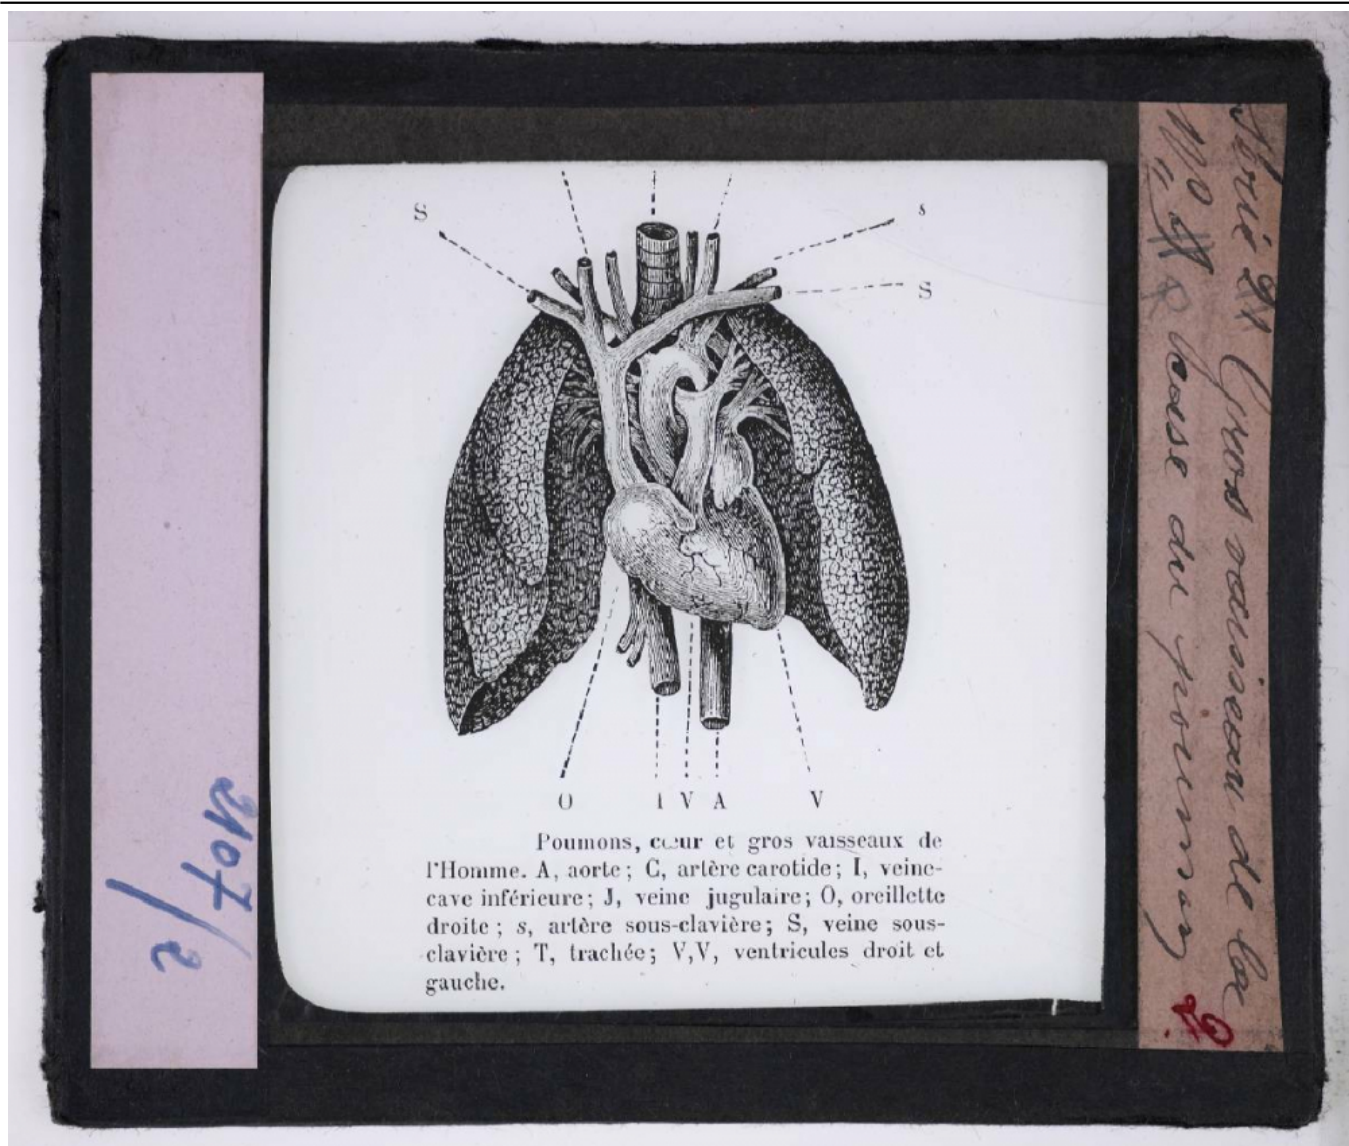 S
s
S
O I V A V
Poumons, cœur et gros vaisseaux de
l'Homme. A, aorte; C, artère carotide; I, veine-
cave inférieure; J, veine jugulaire; O, oreillette
droite; s, artère sous-clavière; S, veine sous-
clavière; T, trachée; V,V, ventricules droit et
gauche.
2107/2
Gros vaisseau de la
base du poumon
2.